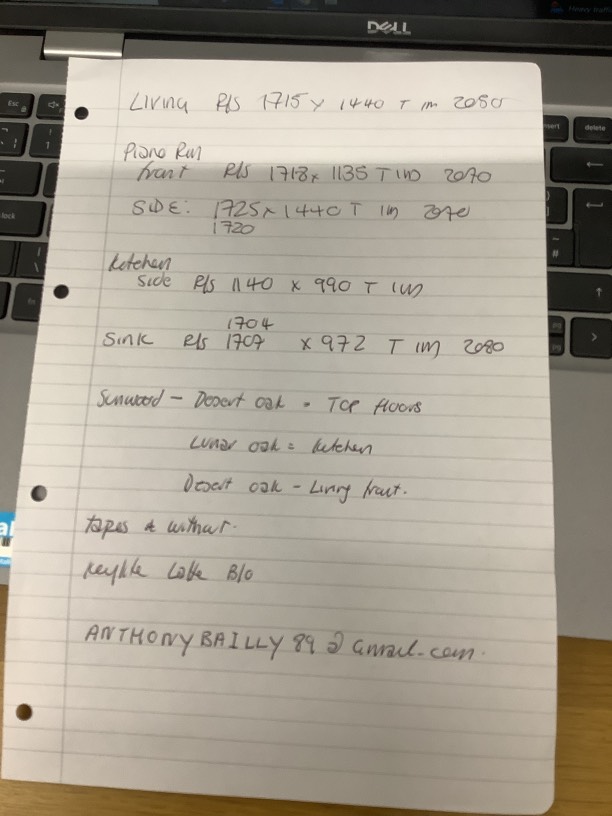 DELL
Living R/S 1715 x 1440 T IM 2050
Piano Rm
front R/S 1718 x 1135 T IM 2070
SIDE: 1725 x 1440 T IM 2070
1720
Kitchen
side R/S 1140 x 990 T IM
1704
Sink R/S 1707 x 972 T IM 2080
Sunwood - Desert oak = Top floors
Lunar oak = kitchen
Desert oak - Living front.
tapes & without.
B/O
ANTHONYBAILLY89@gmail.com.